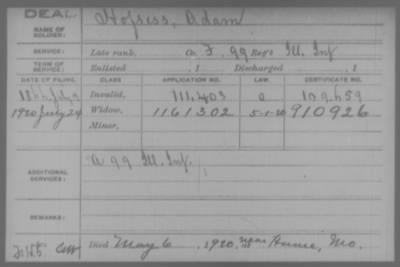 DEAD
NAME OF SOLDIER: Hofsess, Adam
SERVICE: Late rank, Co F, 99 Reg't Ill. Inf
TERM OF SERVICE: Enlisted , 1 Discharged , 1
DATE OF FILING. CLASS APPLICATION NO. LAW. CERTIFICATE NO.
July 9 Invalid, 711,403
1920 July 24 Widow, 1161302 5-1-20 910926
Minor,
ADDITIONAL SERVICES: A 99 Ill. Inf.
REMARKS:
Died May 6, 1920, near Hume, Mo.